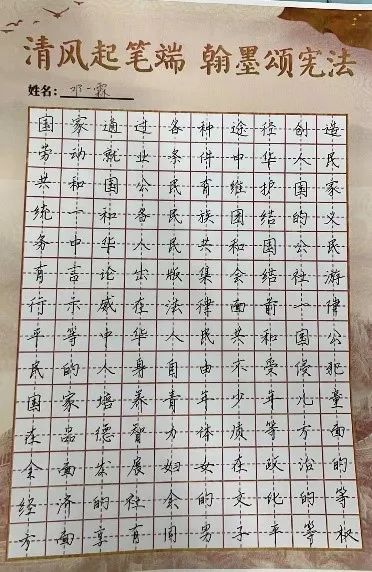 清风起笔端 翰墨颂宪法
姓名: 邓一霖
国家通过各种途径创造
劳动就业条件中华人民
共和国公民有维护国家
统一和各民族团结的义
务中华人民共和国公民
有言论出版集会结社游
行示威在法律面前一律
平等中华人民共和国公
民的人身自由不受侵犯
国家培养青年少年儿童
在品德智力体质等方面
全面发展妇女在政治的
经济的社会的文化的等
方面享有同男子平等权